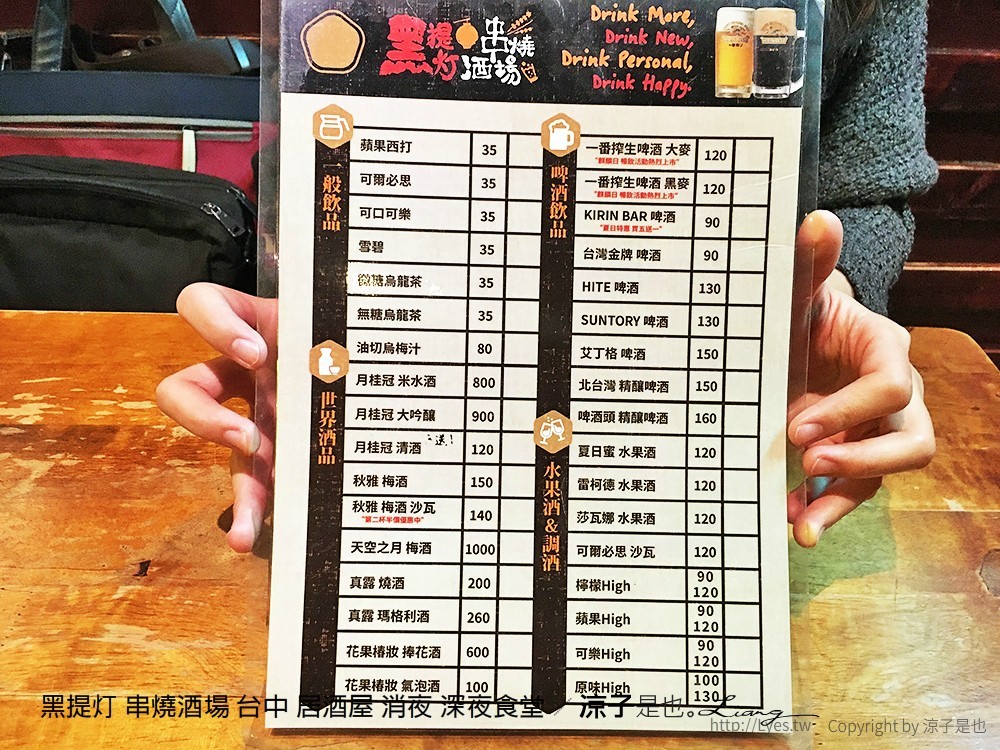 黑提灯 串燒酒場
Drink More,
Drink New,
Drink Personal,
Drink Happy.
一般飲品
蘋果西打 35
可爾必思 35
可口可樂 35
雪碧 35
微糖烏龍茶 35
無糖烏龍茶 35
油切烏梅汁 80
世界酒品
月桂冠 米水酒 800
月桂冠 大吟釀 900
月桂冠 清酒 120
=送!
秋雅 梅酒 150
秋雅 梅酒 沙瓦 140
"第二杯半價優惠中"
天空之月 梅酒 1000
真露 燒酒 200
真露 瑪格利酒 260
花果椿妝 捧花酒 600
花果椿妝 氣泡酒 100
啤酒飲品
一番搾生啤酒 大麥 120
"麒麟日 暢飲活動熱烈上市"
一番搾生啤酒 黑麥 120
"麒麟日 暢飲活動熱烈上市"
KIRIN BAR 啤酒 90
"夏日特惠 買五送一"
台灣金牌 啤酒 90
HITE 啤酒 130
SUNTORY 啤酒 130
艾丁格 啤酒 150
北台灣 精釀啤酒 150
啤酒頭 精釀啤酒 160
水果酒&調酒
夏日蜜 水果酒 120
雷柯德 水果酒 120
莎瓦娜 水果酒 120
可爾必思 沙瓦 120
檸檬High 90 120
蘋果High 90 120
可樂High 90 120
原味High 100 130
黑提灯 串燒酒場 台中 居酒屋 消夜 深夜食堂 / 涼子是也。Liang
http://Lyes.tw Copyright by 涼子是也